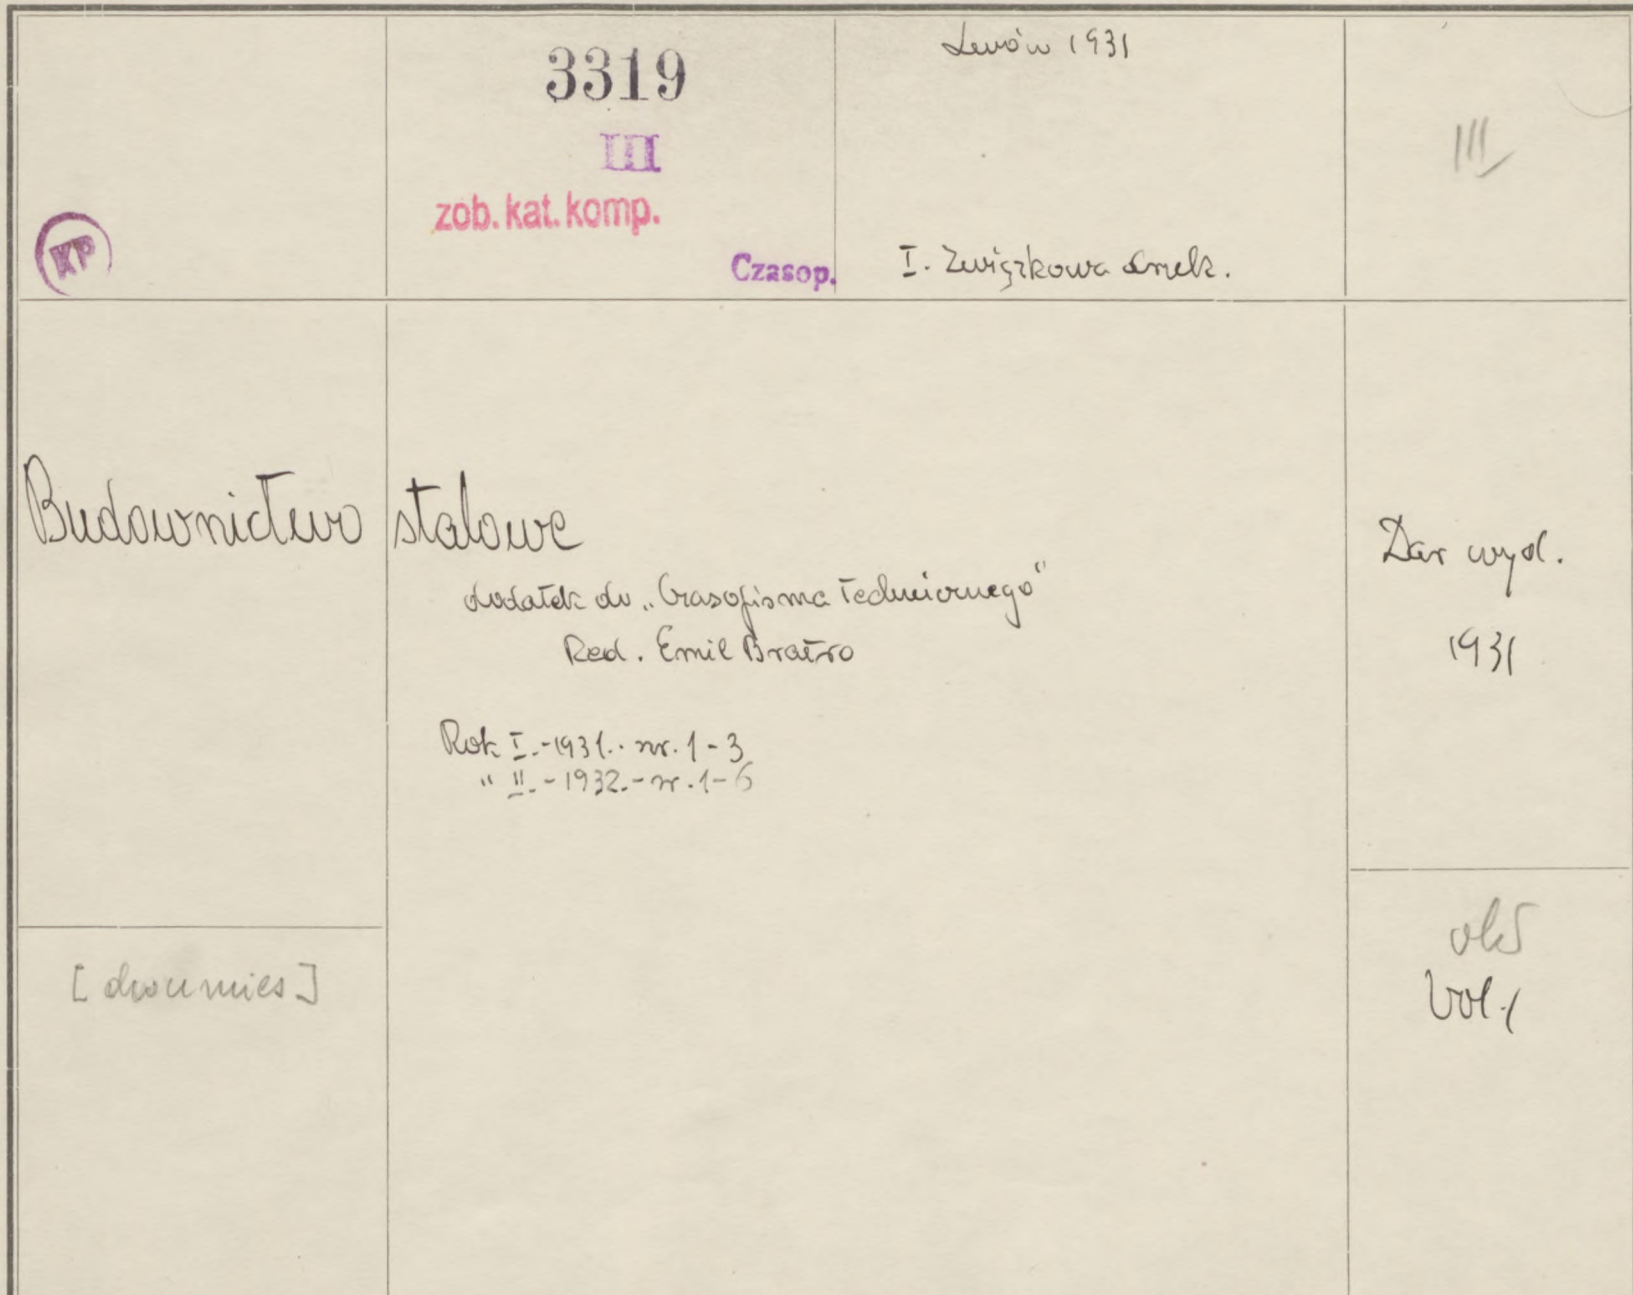 3319
III
zob. kat. komp.
KP
Czasop.
Lwów 1931
I. Związkowa druk.
III
Budownictwo stalowe
dodatek do „Czasopisma Technicznego"
Red. Emil Bratro
Rok I.-1931.- nr. 1-3
" II.-1932.- nr. 1-6
Dar wyd.
1931
[dwumies]
Vol. 1